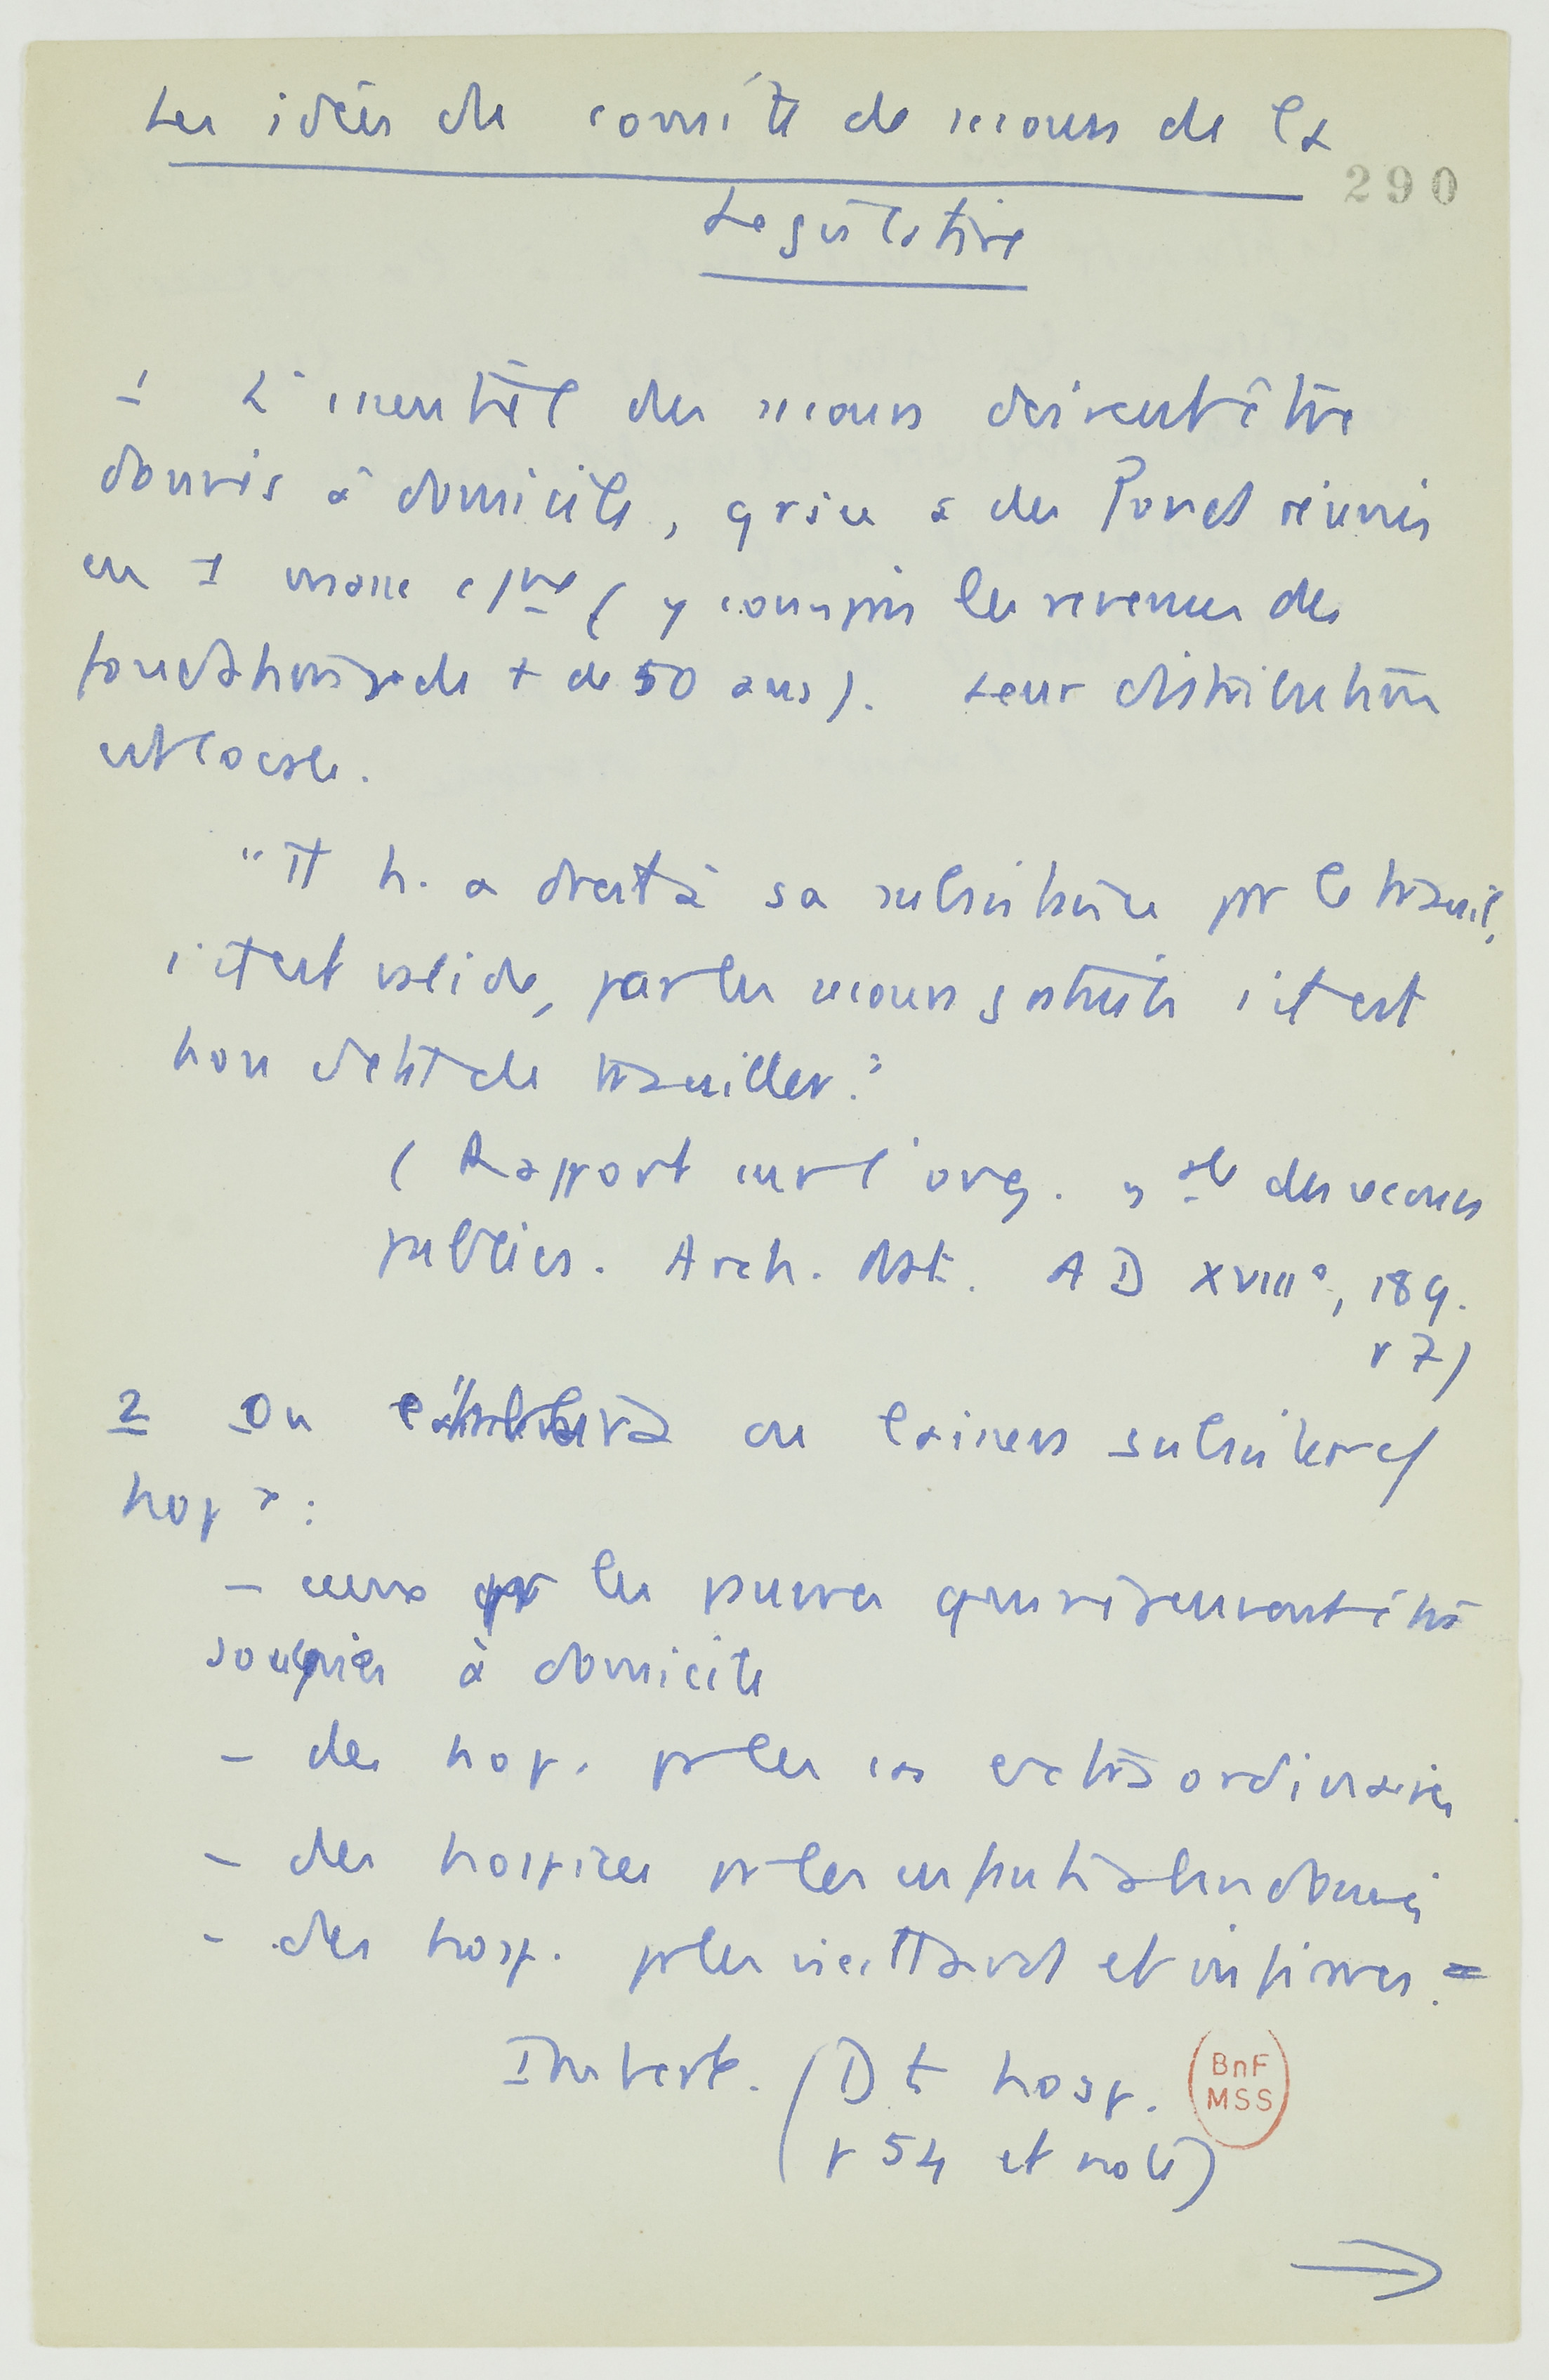 Les idées du comité de secours de la
290
Législative
1 L'essentiel des secours doivent être
donnés à domicile, grâce à des fonds réunis
en 1 masse c/ne (y compris les revenus des
fonds hosp. de + de 50 ans). Leur distribution
est locale.
"Tt h. a droit à sa subsistance par le travail,
s'il est valide, par des secours gratuits s'il est
hors d'état de travailler."
(Rapport sur l'org. gale des secours
publics. Arch. Nat. AD XVIII°, 189.
p 7)
2 On laissera subsister c/
hopx :
- ceux pr les pauvres qui ne peuvent être
soignés à domicile
- des hop. pr les cas extraordinaires
- des hospices pr les enfants abandonnés
- des hosp. pr les vieillards et infirmes.
Imbert. (Dt hosp.
p 54 et note)
BnF
MSS
→